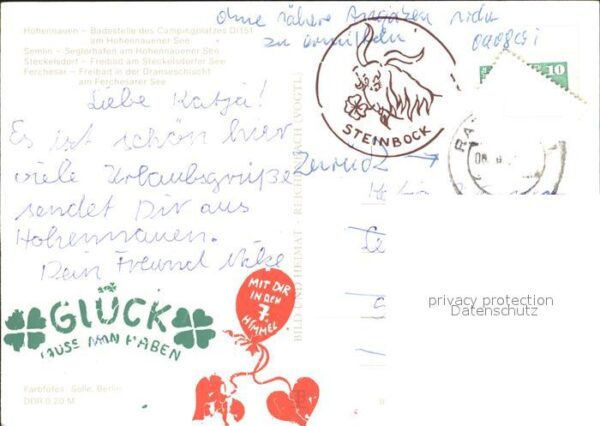 Hohennauen - Badestelle des Campingplatzes D/151
am Hohennauener See
Semlin - Seglerhafen am Hohennauener See
Steckelsdorf - Freibad am Steckelsdorfer See
Ferchesar - Freibad in der Dranseschlucht
am Ferchesarer See
ohne nähere Angaben
zu ermitteln
10
STEINBOCK
Liebe Katja!
Es ist schön hier
viele Urlaubsgrüße
sendet Dir aus
Hohennauen.
Dein Freund
Zurück
BILD UND HEIMAT · REICHENBACH (VOGTL)
GLÜCK
MUSS MAN HABEN
MIT DIR
IN DEN
7.
HIMMEL
privacy protection
Datenschutz
Farbfotos: Solle, Berlin
DDR 0,20 M